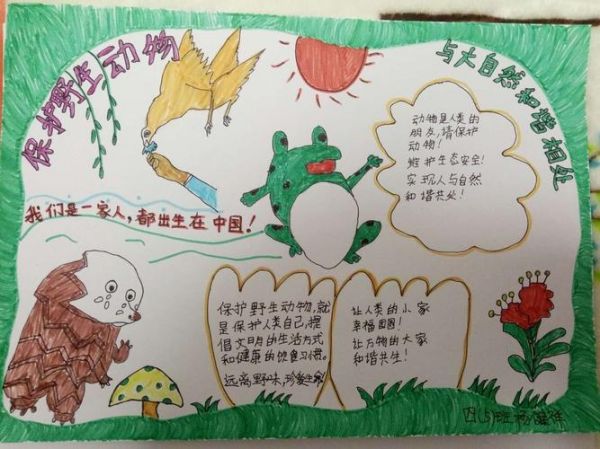 保护野生动物
与大自然和谐相处
动物是人类的
朋友,请保护
动物!
维护生态安全!
实现人与自然
和谐共处!
我们是一家人,都出生在中国!
保护野生动物,就
是保护人类自己,提
倡文明的生活方式
和健康的饮食习惯。
远离野味,珍爱生命
让人类的小家
幸福团圆!
让万物的大家
和谐共生!
四(5)班杨